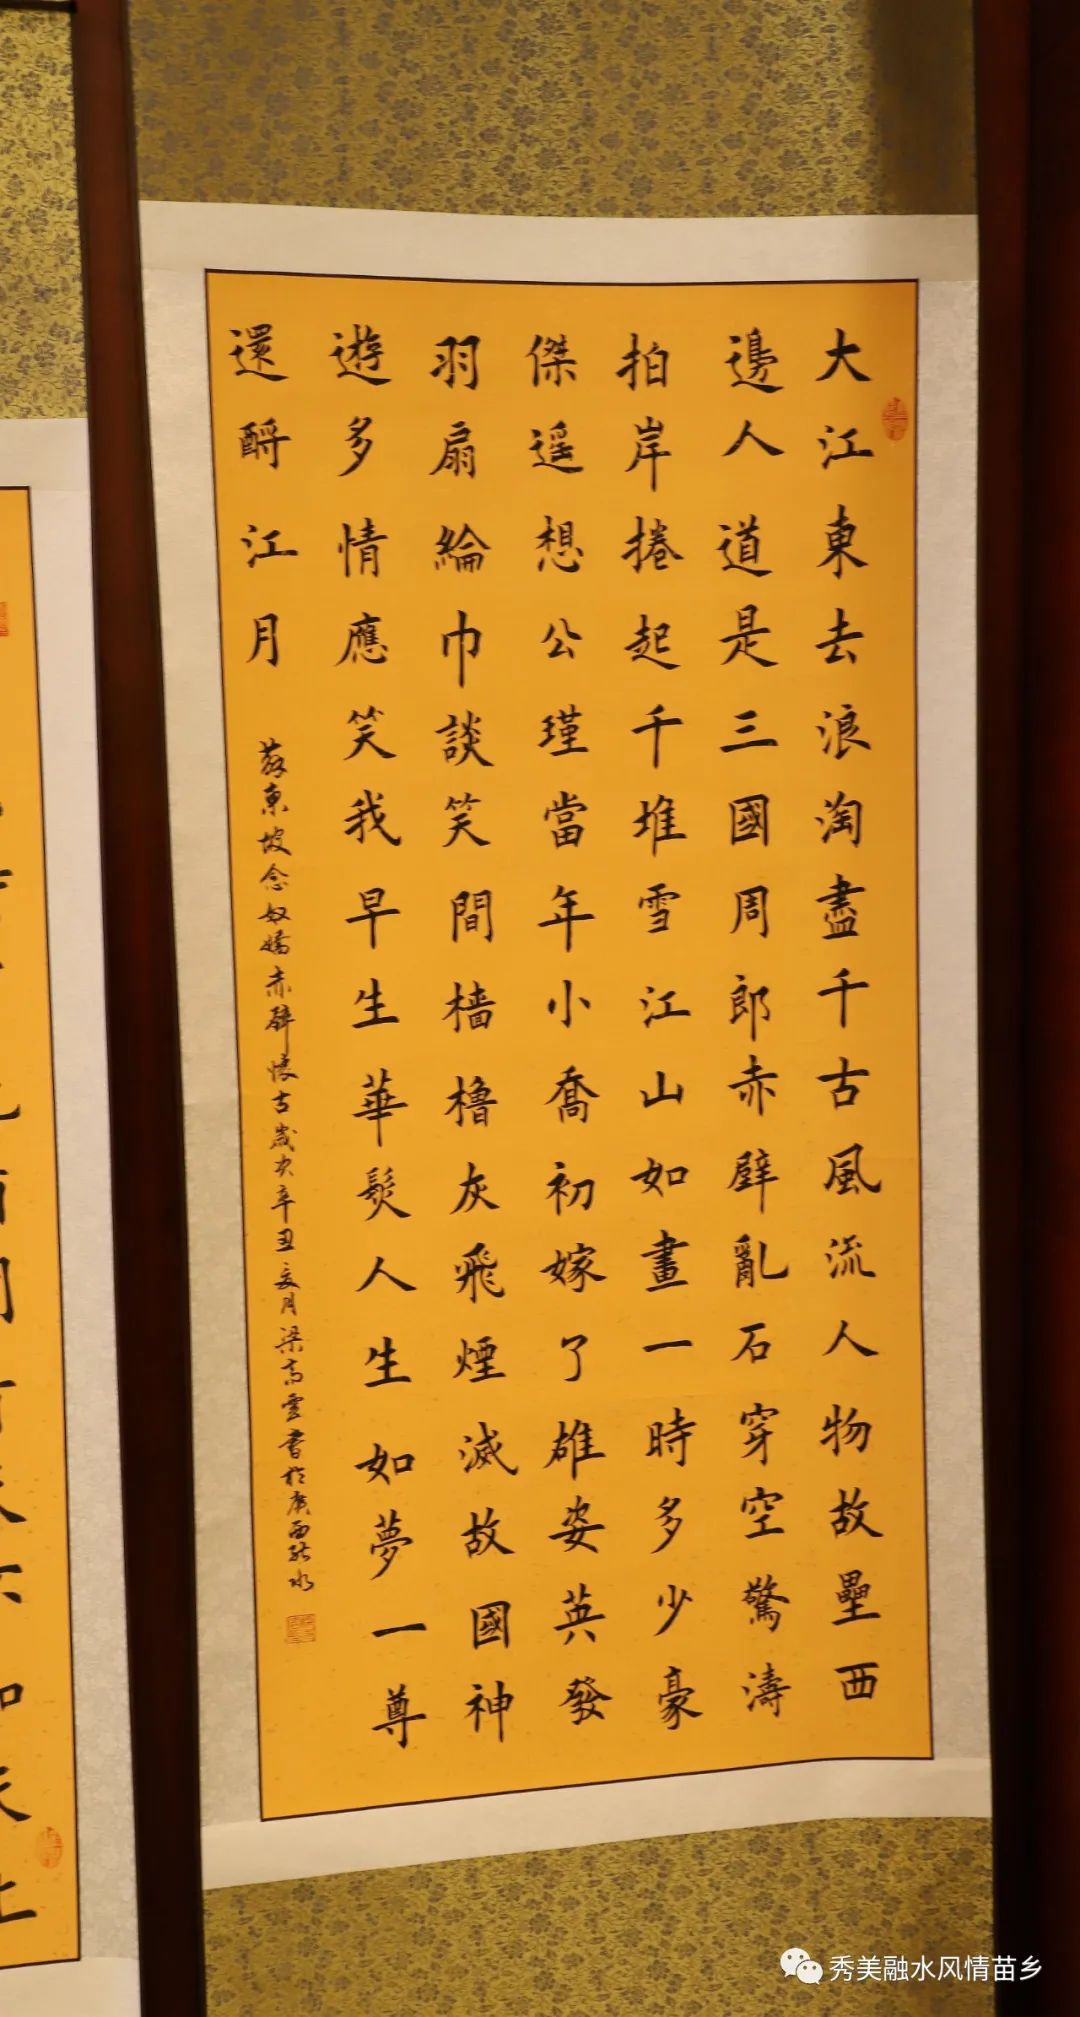 大江東去浪淘盡千古風流人物故壘西
邊人道是三國周郎赤壁亂石穿空驚濤
拍岸捲起千堆雪江山如畫一時多少豪
傑遥想公瑾當年小喬初嫁了雄姿英發
羽扇綸巾談笑間檣櫓灰飛煙滅故國神
遊多情應笑我早生華髮人生如夢一尊
還酹江月
蘇東坡念奴嬌赤壁懷古歲次辛丑月梁高雲書於廣西融水
秀美融水风情苗乡